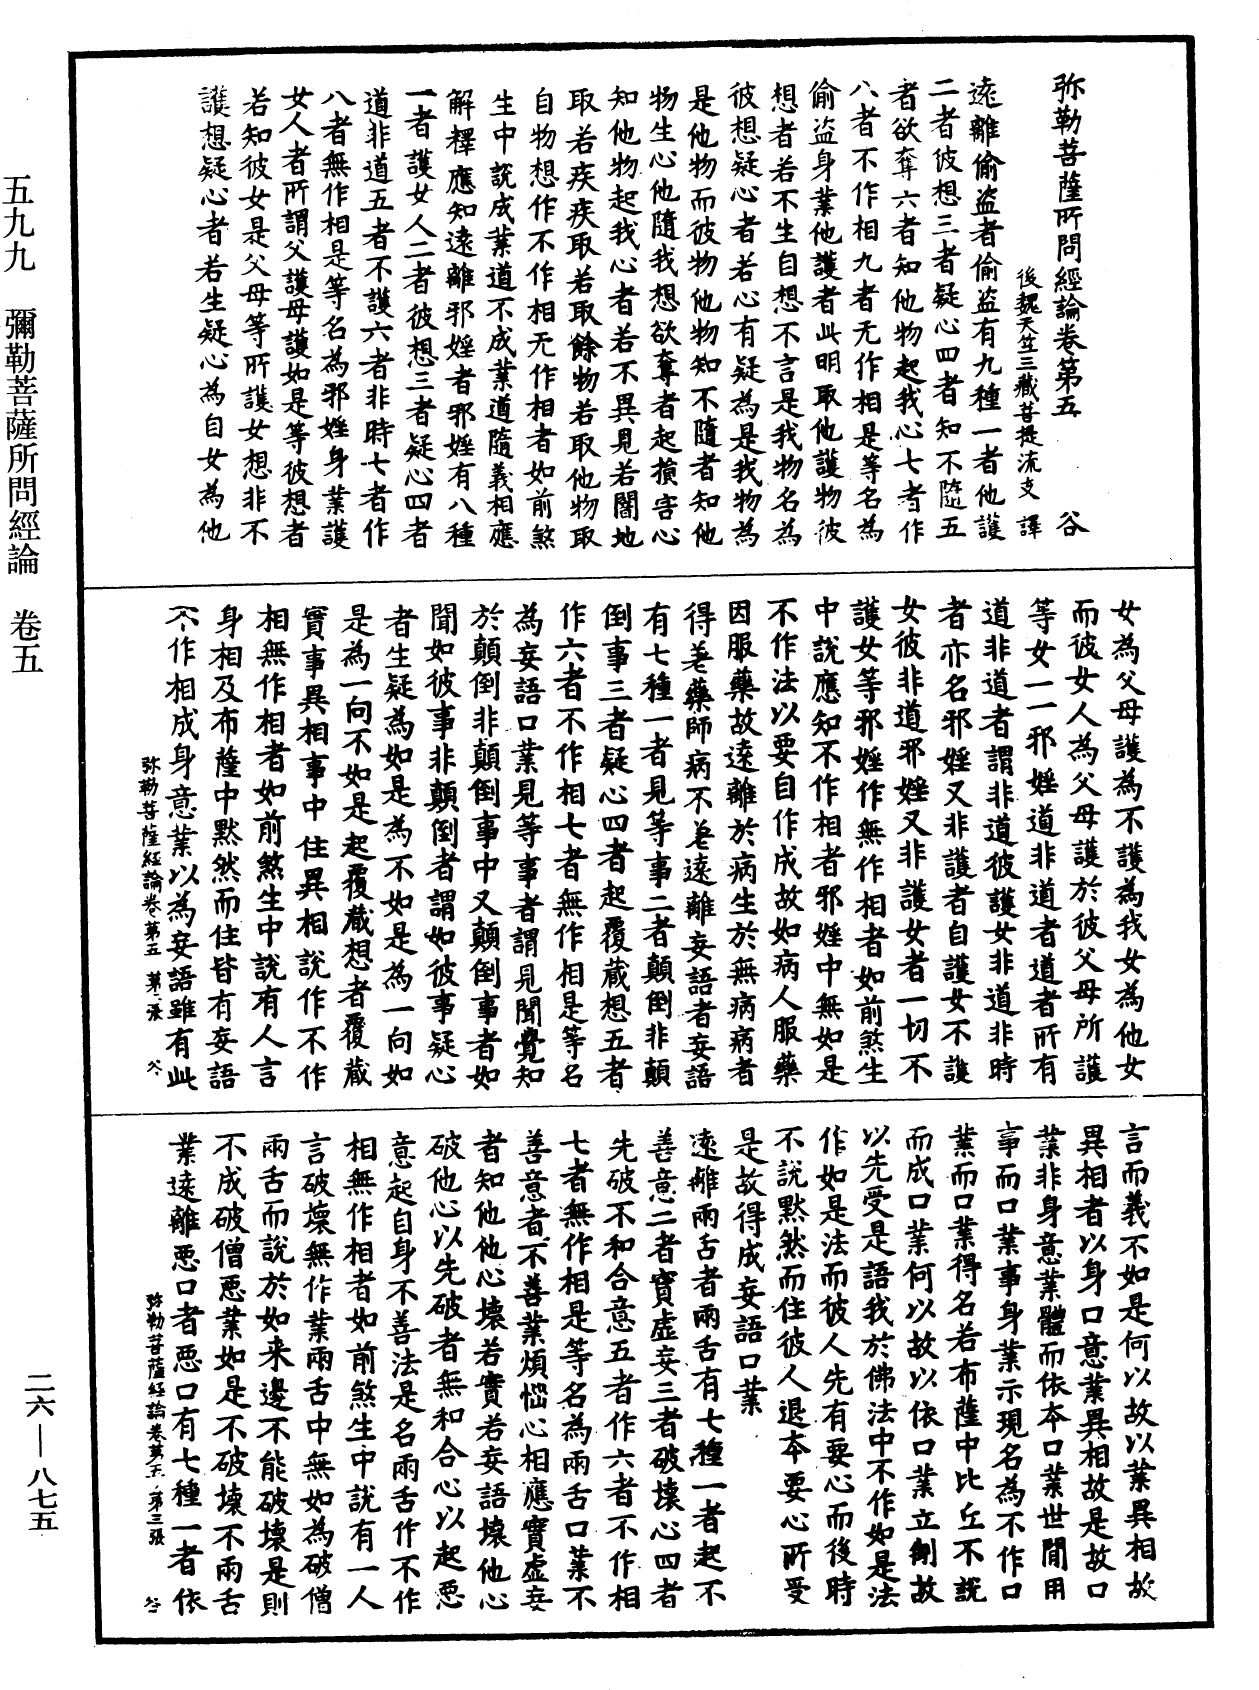 弥勒菩薩所問經論卷第五　谷
後魏天竺三藏菩提流支　譯
遠離偷盜者偷盜有九種一者他護
二者彼想三者疑心四者知不隨五
者欲奪六者知他物起我心七者作
八者不作相九者无作相是等名為
偷盜身業他護者此明取他護物彼
想者若不生自想不言是我物名為
彼想疑心者若心有疑為是我物為
是他物而彼物他物知不隨者知他
物生心他隨我想欲奪者起損害心
知他物起我心者若不異見若闇地
取若疾疾取若取餘物若取他物取
自物想作不作相无作相者如前煞
生中說成業道不成業道隨義相應
解釋應知遠離邪婬者邪婬有八種
一者護女人二者彼想三者疑心四者
道非道五者不護六者非時七者作
八者無作相是等名為邪婬身業護
女人者所謂父護母護如是等彼想者
若知彼女是父母等所護女想非不
護想疑心者若生疑心為自女為他
女為父母護為不護為我女為他女
而彼女人為父母護於彼父母所護
等女一一邪婬道非道者道者所有
道非道者謂非道彼護女非道非時
者亦名邪婬又非護者自護女不護
女彼非道邪婬又非護女者一切不
護女等邪婬作無作相者如前煞生
中說應知不作相者邪婬中無如是
不作法以要自作成故如病人服藥
因服藥故遠離於病生於無病病者
得差藥師病不差遠離妄語者妄語
有七種一者見等事二者顛倒非顛
倒事三者疑心四者起覆藏想五者
作六者不作相七者無作相是等名
為妄語口業見等事者謂見聞覺知
於顛倒非顛倒事中又顛倒事者如
聞如彼事非顛倒者謂如彼事疑心
者生疑為如是為不如是為一向如
是為一向不如是起覆藏想者覆藏
實事異相事中住異相說作不作
相無作相者如前煞生中說有人言
身相及布薩中默然而住皆有妄語
不作相成身意業以為妄語雖有此
弥勒菩薩經論卷第五　第二張　谷
言而義不如是何以故以業異相故
異相者以身口意業異相故是故口
業非身意業體而依夲口業世間用
事而口業事身業示現名為不作口
業而口業得名若布薩中比丘不說
而成口業何以故以依口業立制故
以先受是語我於佛法中不作如是法
作如是法而彼人先有要心而後時
不說默然而住彼人退夲要心所受
是故得成妄語口業
遠離兩舌者兩舌有七種一者起不
善意二者實虛妄三者破壞心四者
先破不和合意五者作六者不作相
七者無作相是等名為兩舌口業不
善意者不善業煩惱心相應實虛妄
者知他他心壞若實若妄語壞他心
破他心以先破者無和合心以起惡
意起自身不善法是名兩舌作不作
相無作相者如前煞生中說有一人
言破壞無作業兩舌中無如為破僧
兩舌而說於如來邊不能破壞是則
不成破僧惡業如是不破壞不兩舌
業遠離惡口者惡口有七種一者依
弥勒菩薩經論卷第五　第三張　谷
五九九　彌勒菩薩所問經論　卷五
二六—八七五